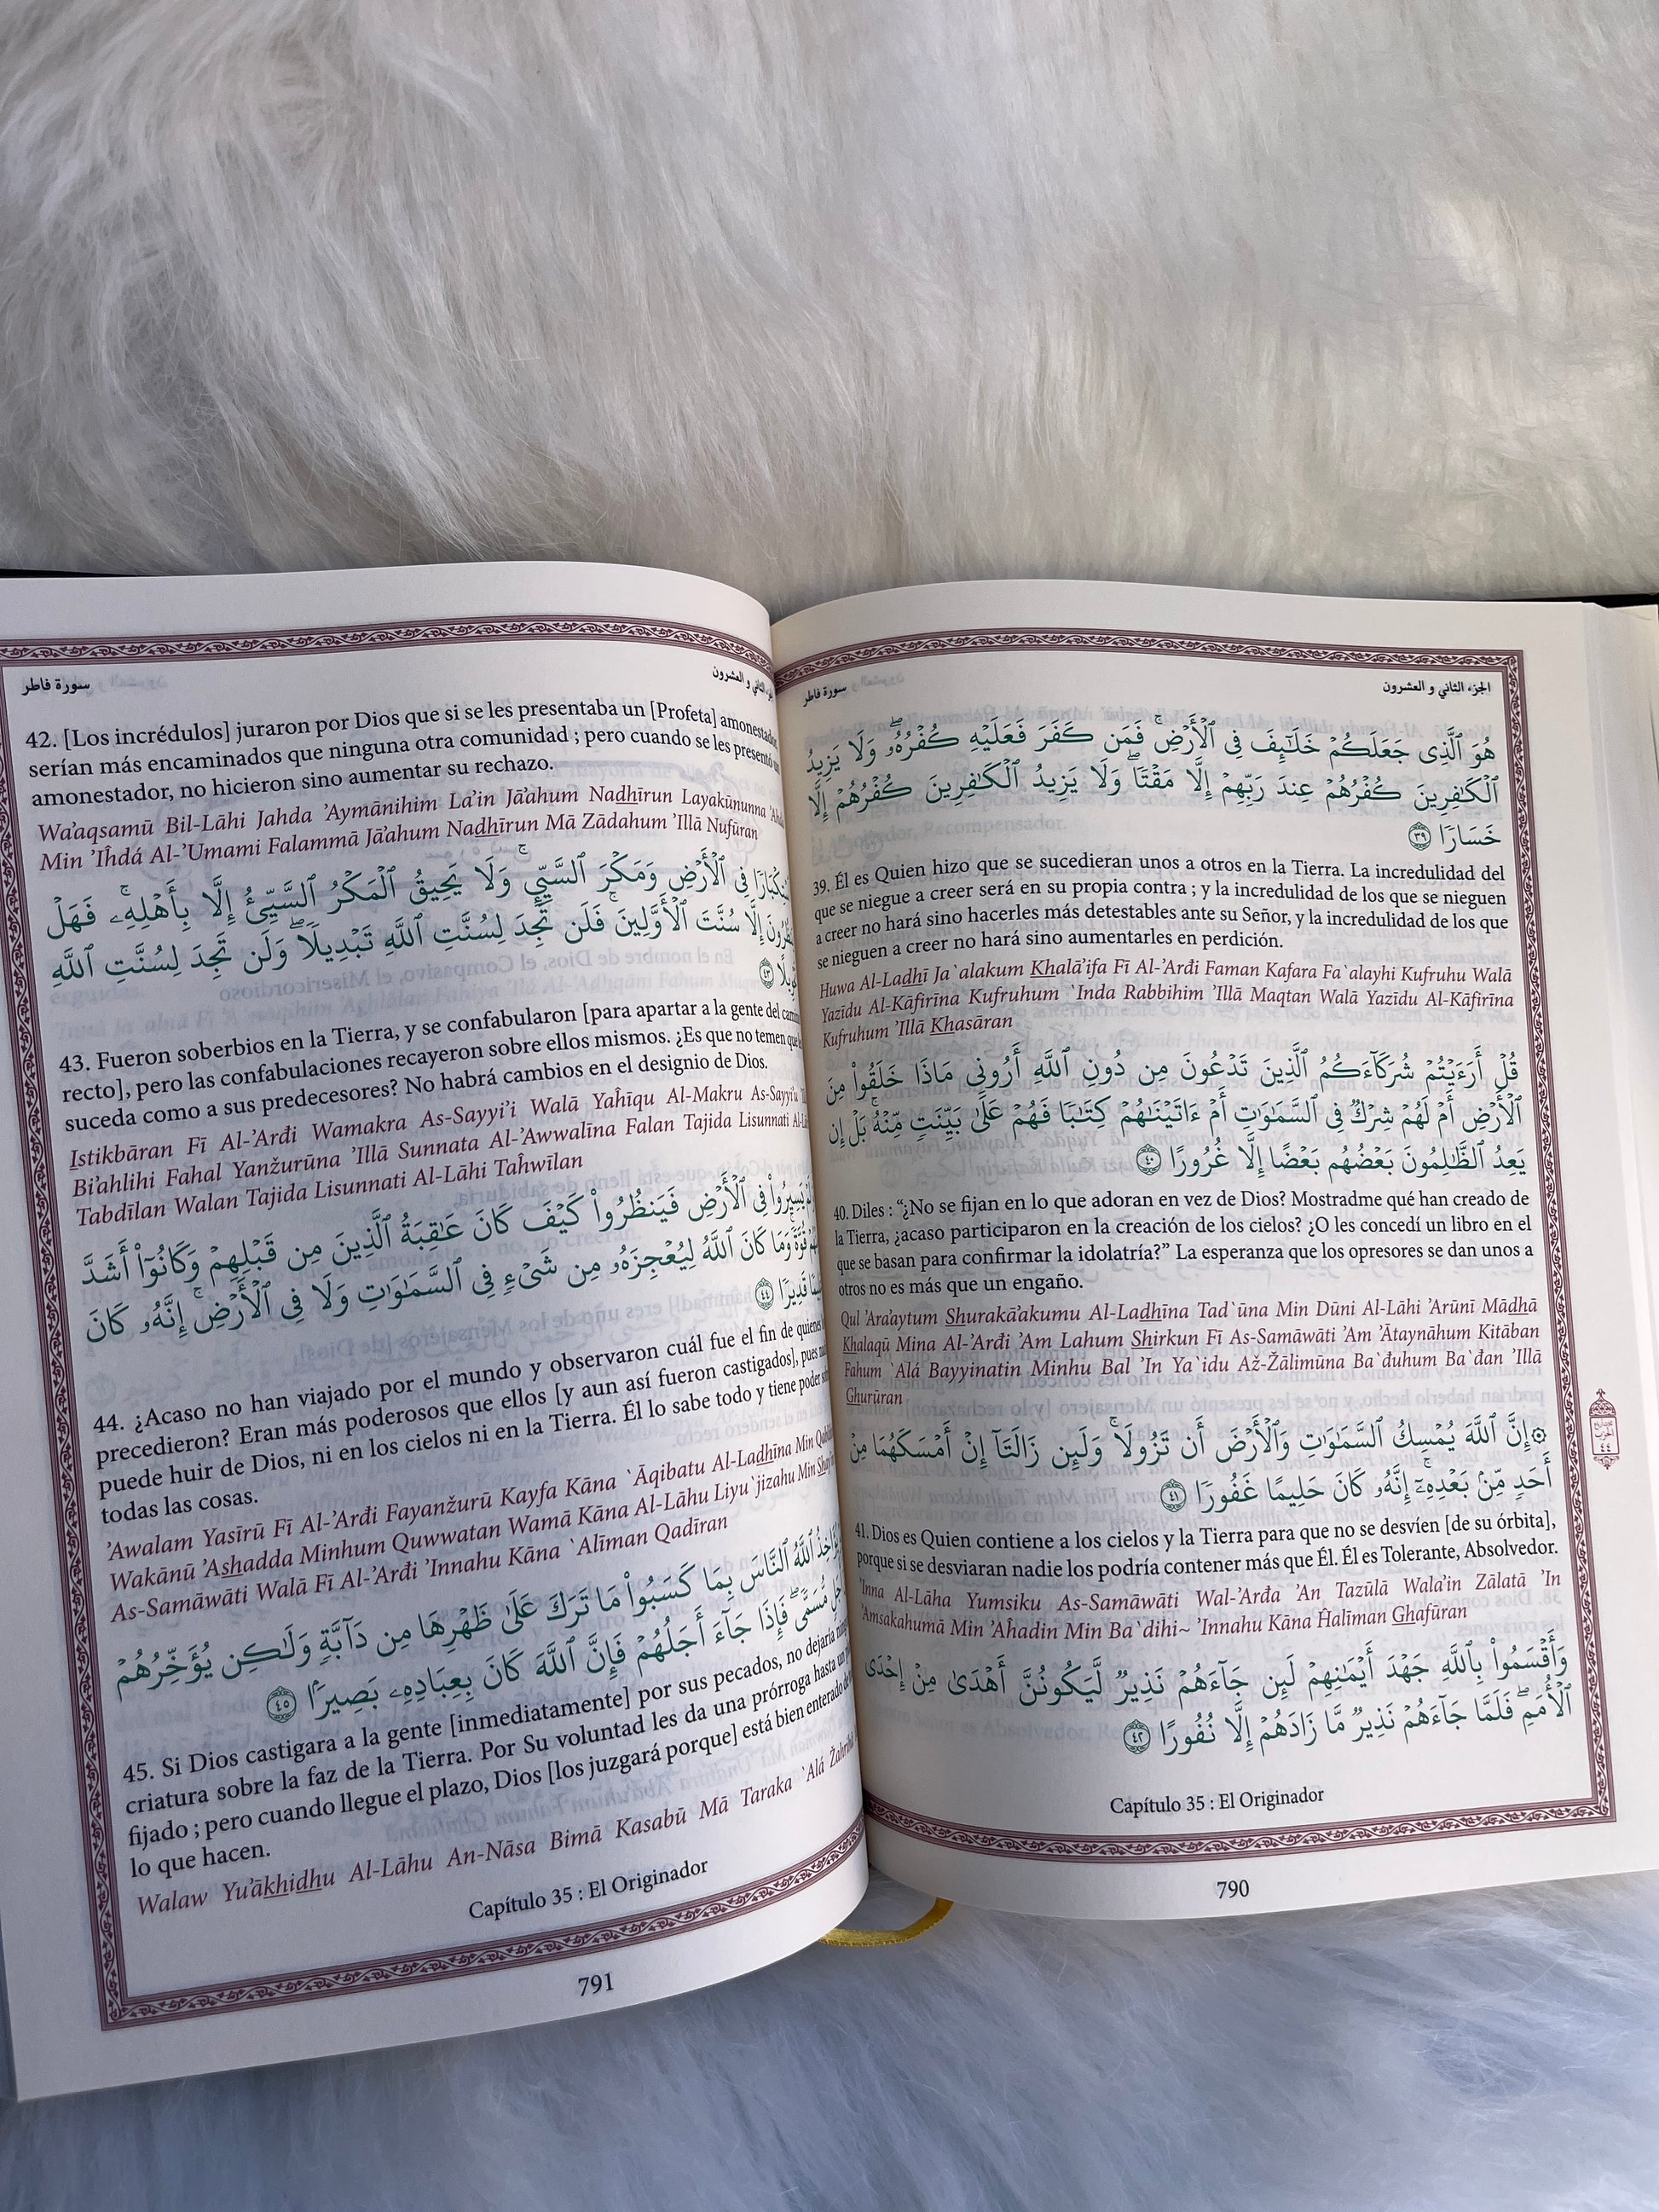 الجزء الثاني و العشرون
سورة فاطر
هُوَ ٱلَّذِى جَعَلَكُمْ خَلَـٰٓئِفَ فِى ٱلْأَرْضِ ۚ فَمَن كَفَرَ فَعَلَيْهِ كُفْرُهُۥ ۖ وَلَا يَزِيدُ
ٱلْكَـٰفِرِينَ كُفْرُهُمْ عِندَ رَبِّهِمْ إِلَّا مَقْتًا ۖ وَلَا يَزِيدُ ٱلْكَـٰفِرِينَ كُفْرُهُمْ إِلَّا
خَسَارًا ٣٩
39. Él es Quien hizo que se sucedieran unos a otros en la Tierra. La incredulidad del
que se niegue a creer será en su propia contra ; y la incredulidad de los que se nieguen
a creer no hará sino hacerles más detestables ante su Señor, y la incredulidad de los que
se nieguen a creer no hará sino aumentarles en perdición.
Huwa Al-Ladhī Ja`alakum Khalā'ifa Fī Al-'Arđi Faman Kafara Fa`alayhi Kufruhu Walā
Yazīdu Al-Kāfirīna Kufruhum `Inda Rabbihim 'Illā Maqtan Walā Yazīdu Al-Kāfirīna
Kufruhum 'Illā Khasāran
قُلْ أَرَءَيْتُمْ شُرَكَآءَكُمُ ٱلَّذِينَ تَدْعُونَ مِن دُونِ ٱللَّهِ أَرُونِى مَاذَا خَلَقُوا۟ مِنَ
ٱلْأَرْضِ أَمْ لَهُمْ شِرْكٌ فِى ٱلسَّمَـٰوَٰتِ أَمْ ءَاتَيْنَـٰهُمْ كِتَـٰبًا فَهُمْ عَلَىٰ بَيِّنَتٍ مِّنْهُ ۚ بَلْ إِن
يَعِدُ ٱلظَّـٰلِمُونَ بَعْضُهُم بَعْضًا إِلَّا غُرُورًا ٤٠
40. Diles : “¿No se fijan en lo que adoran en vez de Dios? Mostradme qué han creado de
la Tierra, ¿acaso participaron en la creación de los cielos? ¿O les concedí un libro en el
que se basan para confirmar la idolatría?” La esperanza que los opresores se dan unos a
otros no es más que un engaño.
Qul 'Ara'aytum Shurakā'akumu Al-Ladhīna Tad`ūna Min Dūni Al-Lāhi 'Arūnī Mādhā
Khalaqū Mina Al-'Arđi 'Am Lahum Shirkun Fī As-Samāwāti 'Am 'Ātaynāhum Kitāban
Fahum `Alá Bayyinatin Minhu Bal 'In Ya`idu Až-Žālimūna Ba`đuhum Ba`đan 'Illā
Ghurūran
۞ إِنَّ ٱللَّهَ يُمْسِكُ ٱلسَّمَـٰوَٰتِ وَٱلْأَرْضَ أَن تَزُولَا ۚ وَلَئِن زَالَتَآ إِنْ أَمْسَكَهُمَا مِنْ
أَحَدٍ مِّنۢ بَعْدِهِۦٓ ۚ إِنَّهُۥ كَانَ حَلِيمًا غَفُورًا ٤١
41. Dios es Quien contiene a los cielos y la Tierra para que no se desvíen [de su órbita],
porque si se desviaran nadie los podría contener más que Él. Él es Tolerante, Absolvedor.
'Inna Al-Lāha Yumsiku As-Samāwāti Wal-'Arđa 'An Tazūlā Wala'in Zālatā 'In
'Amsakahumā Min 'Aĥadin Min Ba`dihi~ 'Innahu Kāna Ĥalīman Ghafūran
وَأَقْسَمُوا۟ بِٱللَّهِ جَهْدَ أَيْمَـٰنِهِمْ لَئِن جَآءَهُمْ نَذِيرٌ لَّيَكُونُنَّ أَهْدَىٰ مِنْ إِحْدَى
ٱلْأُمَمِ ۖ فَلَمَّا جَآءَهُمْ نَذِيرٌ مَّا زَادَهُمْ إِلَّا نُفُورًا ٤٢
Capítulo 35 : El Originador
790
الثاني و العشرون
سورة فاطر
42. [Los incrédulos] juraron por Dios que si se les presentaba un [Profeta] amonestador,
serían más encaminados que ninguna otra comunidad ; pero cuando se les presentó
amonestador, no hicieron sino aumentar su rechazo.
Wa'aqsamū Bil-Lāhi Jahda 'Aymānihim La'in Jā'ahum Nadhīrun Layakūnunna
Min 'Iĥdá Al-'Umami Falammā Jā'ahum Nadhīrun Mā Zādahum 'Illā Nufūran
فِى ٱلْأَرْضِ وَمَكْرَ ٱلسَّيِّئِ ۚ وَلَا يَحِيقُ ٱلْمَكْرُ ٱلسَّيِّئُ إِلَّا بِأَهْلِهِۦ ۚ فَهَلْ
إِلَّا سُنَّتَ ٱلْأَوَّلِينَ ۚ فَلَن تَجِدَ لِسُنَّتِ ٱللَّهِ تَبْدِيلًا ۖ وَلَن تَجِدَ لِسُنَّتِ ٱللَّهِ
٤٣
43. Fueron soberbios en la Tierra, y se confabularon [para apartar a la gente del
recto], pero las confabulaciones recayeron sobre ellos mismos. ¿Es que no temen que
suceda como a sus predecesores? No habrá cambios en el designio de Dios.
Istikbāran Fī Al-'Arđi Wamakra As-Sayyi'i Walā Yaĥīqu Al-Makru As-Sayyi'u
Bi'ahlihi Fahal Yanžurūna 'Illā Sunnata Al-'Awwalīna Falan Tajida Lisunnati
Tabdīlan Walan Tajida Lisunnati Al-Lāhi Taĥwīlan
يَسِيرُوا۟ فِى ٱلْأَرْضِ فَيَنظُرُوا۟ كَيْفَ كَانَ عَـٰقِبَةُ ٱلَّذِينَ مِن قَبْلِهِمْ وَكَانُوٓا۟ أَشَدَّ
قُوَّةً ۚ وَمَا كَانَ ٱللَّهُ لِيُعْجِزَهُۥ مِن شَىْءٍ فِى ٱلسَّمَـٰوَٰتِ وَلَا فِى ٱلْأَرْضِ ۚ إِنَّهُۥ كَانَ
قَدِيرًا ٤٤
44. ¿Acaso no han viajado por el mundo y observaron cuál fue el fin de quienes
precedieron? Eran más poderosos que ellos [y aun así fueron castigados], pues
puede huir de Dios, ni en los cielos ni en la Tierra. Él lo sabe todo y tiene poder
todas las cosas.
'Awalam Yasīrū Fī Al-'Arđi Fayanžurū Kayfa Kāna `Āqibatu Al-Ladhīna Min
Wakānū 'Ashadda Minhum Quwwatan Wamā Kāna Al-Lāhu Liyu`jizahu Min
As-Samāwāti Walā Fī Al-'Arđi 'Innahu Kāna `Alīman Qadīran
ٱللَّهُ ٱلنَّاسَ بِمَا كَسَبُوا۟ مَا تَرَكَ عَلَىٰ ظَهْرِهَا مِن دَآبَّةٍ وَلَـٰكِن يُؤَخِّرُهُمْ
مُّسَمًّى ۖ فَإِذَا جَآءَ أَجَلُهُمْ فَإِنَّ ٱللَّهَ كَانَ بِعِبَادِهِۦ بَصِيرًۢا ٤٥
45. Si Dios castigara a la gente [inmediatamente] por sus pecados, no dejaría
criatura sobre la faz de la Tierra. Por Su voluntad les da una prórroga hasta un
fijado ; pero cuando llegue el plazo, Dios [los juzgará porque] está bien enterado
lo que hacen.
Walaw Yu'ākhidhu Al-Lāhu An-Nāsa Bimā Kasabū Mā Taraka `Alá
Capítulo 35 : El Originador
791